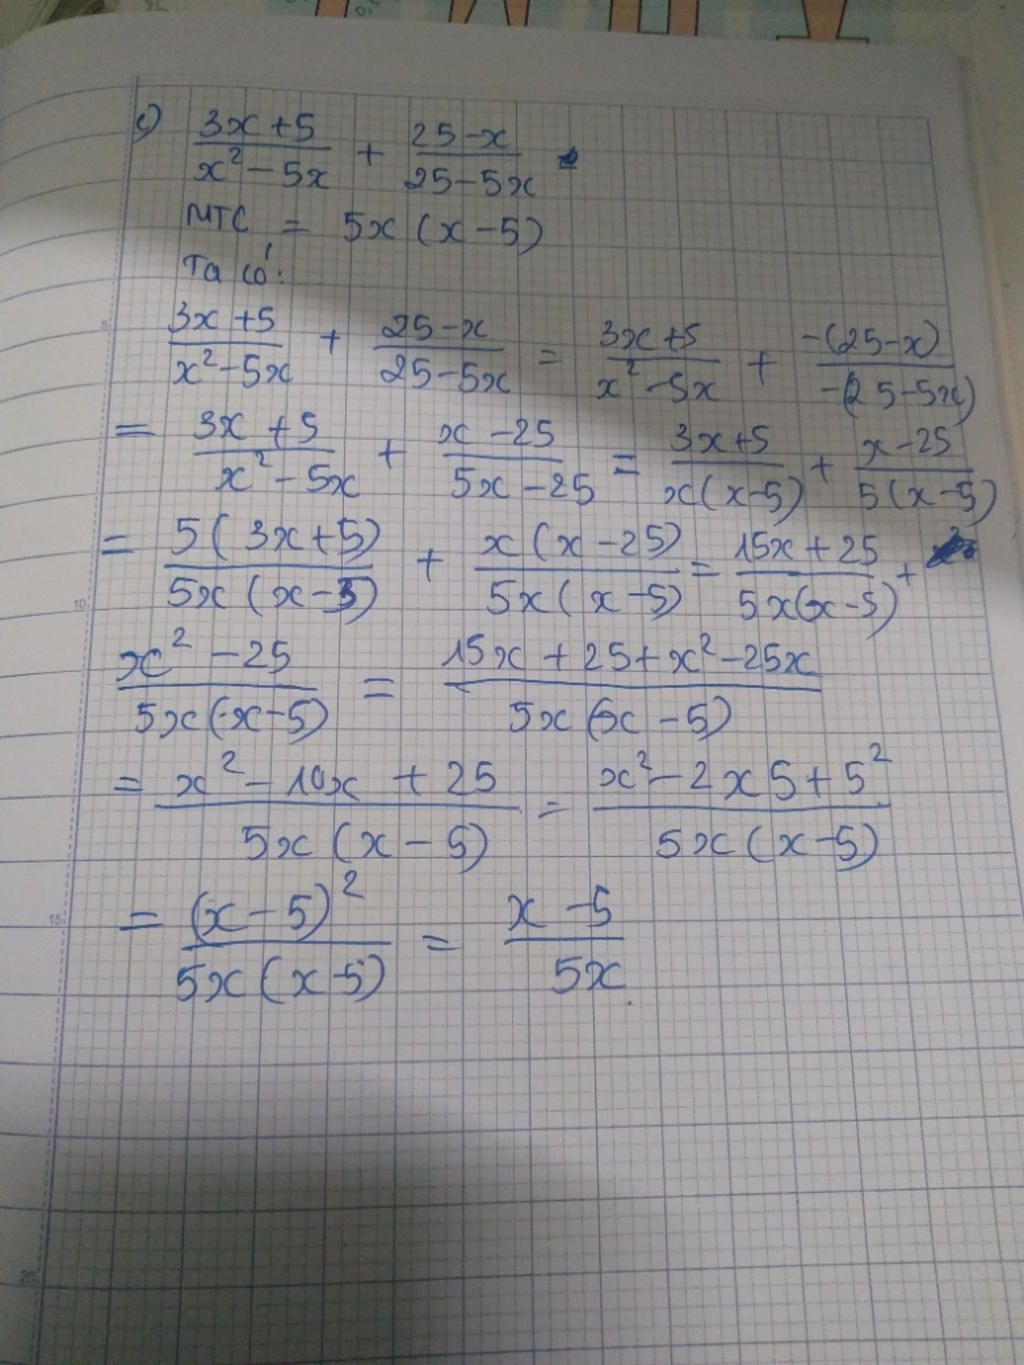 c) (3x+5)/(x²-5x) + (25-x)/(25-5x)
MTC = 5x(x-5)
Ta có:
(3x+5)/(x²-5x) + (25-x)/(25-5x) = (3x+5)/(x²-5x) + (-(25-x))/(-(25-5x))
= (3x+5)/(x²-5x) + (x-25)/(5x-25) = (3x+5)/(x(x-5)) + (x-25)/(5(x-5))
= (5(3x+5))/(5x(x-5)) + (x(x-25))/(5x(x-5)) = (15x+25)/(5x(x-5)) +
(x²-25)/(5x(x-5)) = (15x+25+x²-25x)/(5x(x-5))
= (x²-10x+25)/(5x(x-5)) = (x²-2x5+5²)/(5x(x-5))
= (x-5)²/(5x(x-5)) = (x-5)/(5x).